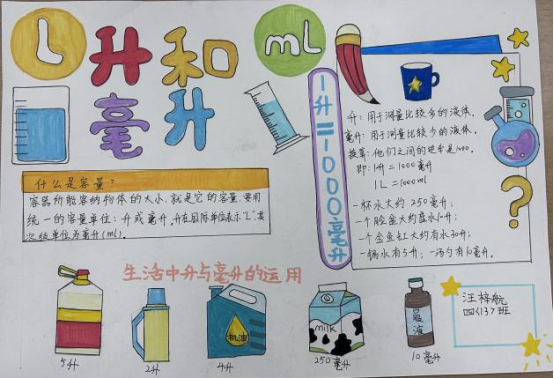 L
升和
毫升
mL
1升=1000毫升
什么是容量?
容器所能容纳物体的大小,就是它的容量.要用
统一的容量单位:升或毫升.升在国际单位表示"L".其
次级单位为毫升(mL).
升:用于测量比较多的液体.
毫升:用于测量比较少的液体.
换算:他们之间的进率是1000.
即:1升=1000毫升
1L=1000ml
一杯水大约250毫升;
一个脸盆大约盛水10升;
一个金鱼缸大约有水30升;
一锅水有5升;一汤勺10毫升.
生活中升与毫升的运用
5升
2升
机油
4升
milk
250毫升
液
10毫升
汪梓航
四(13)班
?